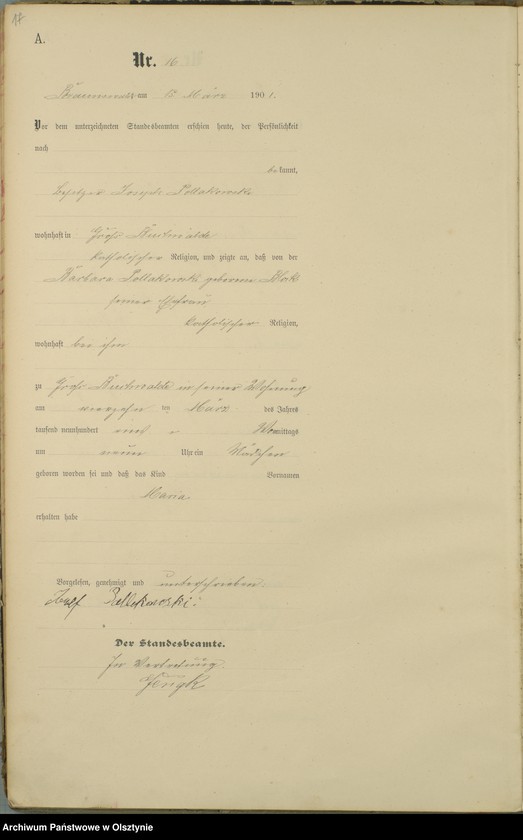 17
A.
Nr. 16
am 15 März 1901.
Vor dem unterzeichneten Standesbeamten erschien heute, der Persönlichkeit
nach
bekannt,
Besitzer Joseph Pollakowski
wohnhaft in Groß
katholischer Religion, und zeigte an, daß von der
Barbara Pollakowski geborene
seiner Ehefrau
katholischer Religion,
wohnhaft bei ihm
zu Groß in seiner Wohnung
am vierzehn ten März des Jahres
tausend neunhundert eins Vormittags
um neun Uhr ein Mädchen
geboren worden sei und daß das Kind Vornamen
Maria
erhalten habe
Vorgelesen, genehmigt und unterschrieben.
Josef Pollakowski
Der Standesbeamte.
In Vertretung.
Archiwum Państwowe w Olsztynie